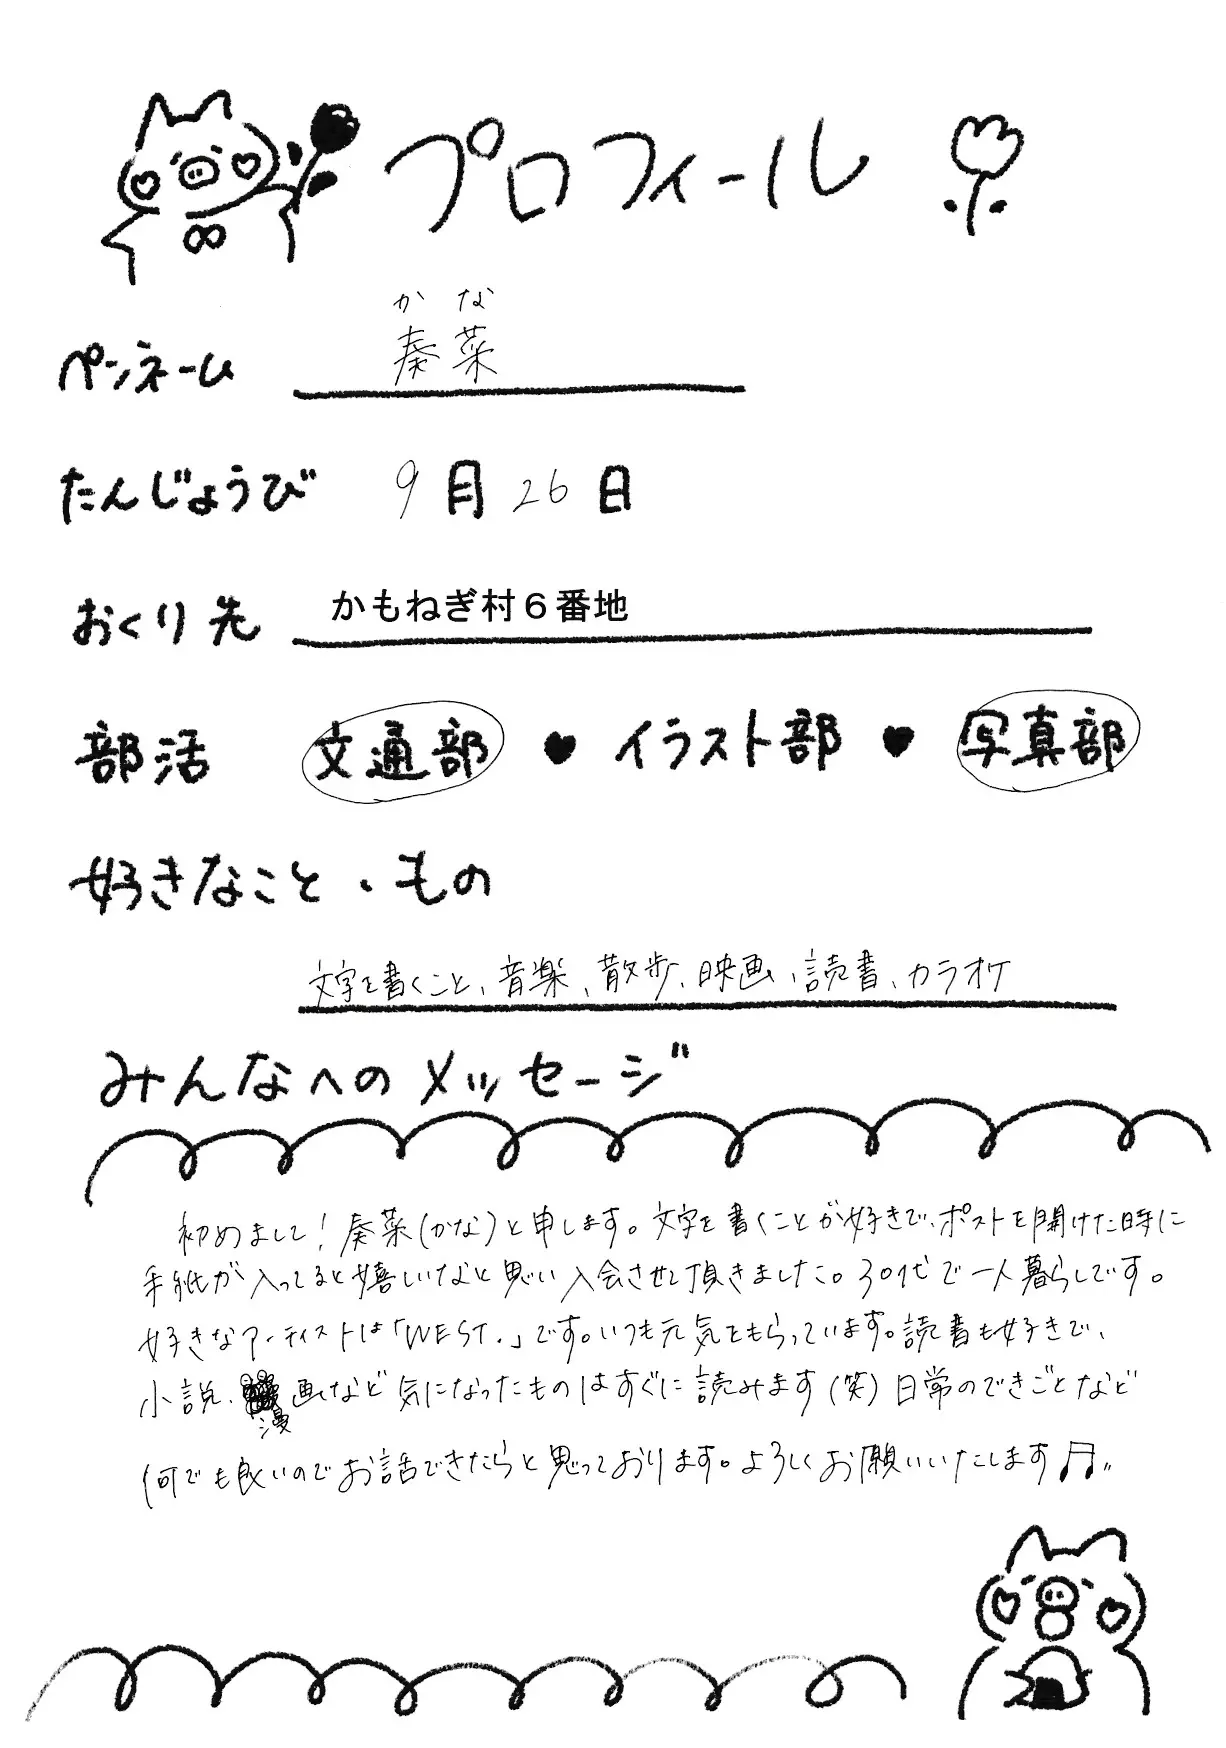 プロフィール
かな
ペンネーム 奏菜
たんじょうび 9月26日
おくり先 かもねぎ村6番地
部活 文通部 ♥ イラスト部 ♥ 写真部
好きなこと・もの
文字を書くこと、音楽、散歩、映画、読書、カラオケ
みんなへのメッセージ
初めまして!奏菜(かな)と申します。文字を書くことが好きで、ポストを開けた時に
手紙が入ってると嬉しいなと思い入会させて頂きました。30代で一人暮らしです。
好きなアーティストは「WEST.」です。いつも元気をもらっています。読書も好きで、
小説、漫画など気になったものはすぐに読みます(笑)日常のできごとなど
何でも良いのでお話できたらと思っております。よろしくお願いいたします♬"